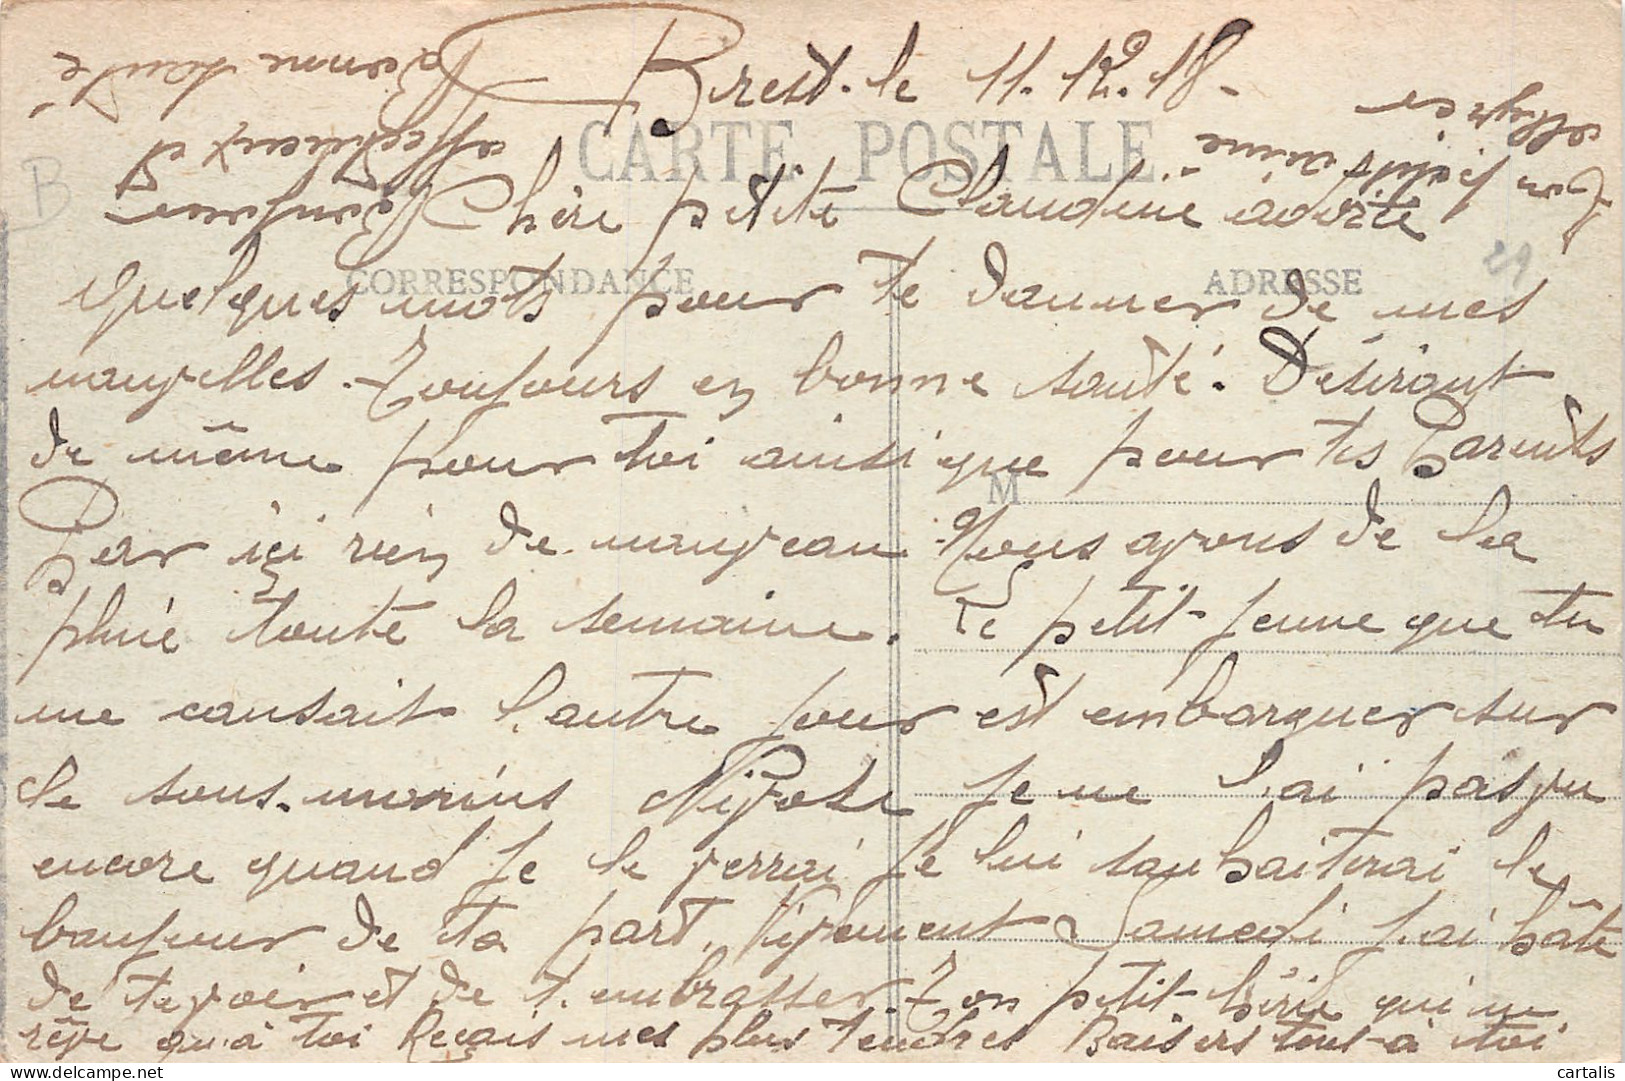 Brest. le 11.12.18-
CARTE POSTALE
Chère petite Claudine adorée
CORRESPONDANCE
ADRESSE
29
B
Quelques mots pour te donner de mes
nouvelles. Toujours en bonne santé. Désirant
de même pour toi ainsi que pour tes Parents
M
Par ici rien de nouveau. Nous avons de la
pluie toute la semaine. Le petit jeune que tu
me causait l'autre jour est embarquer sur
le sous-marins Nivose je ne l'ai pas vu
encore quand je le verrai je lui souhaiterai le
bonjour de ta part. Vivement Samedi j'ai hâte
de te voir et de t'embrasser. Ton petit chéri qui ne
rêve qu'à toi Reçois mes plus tendres Baisers tout à toi
Ton petit qui t'aime
Bonjour
affectueux à
Bonne santé
cartalis